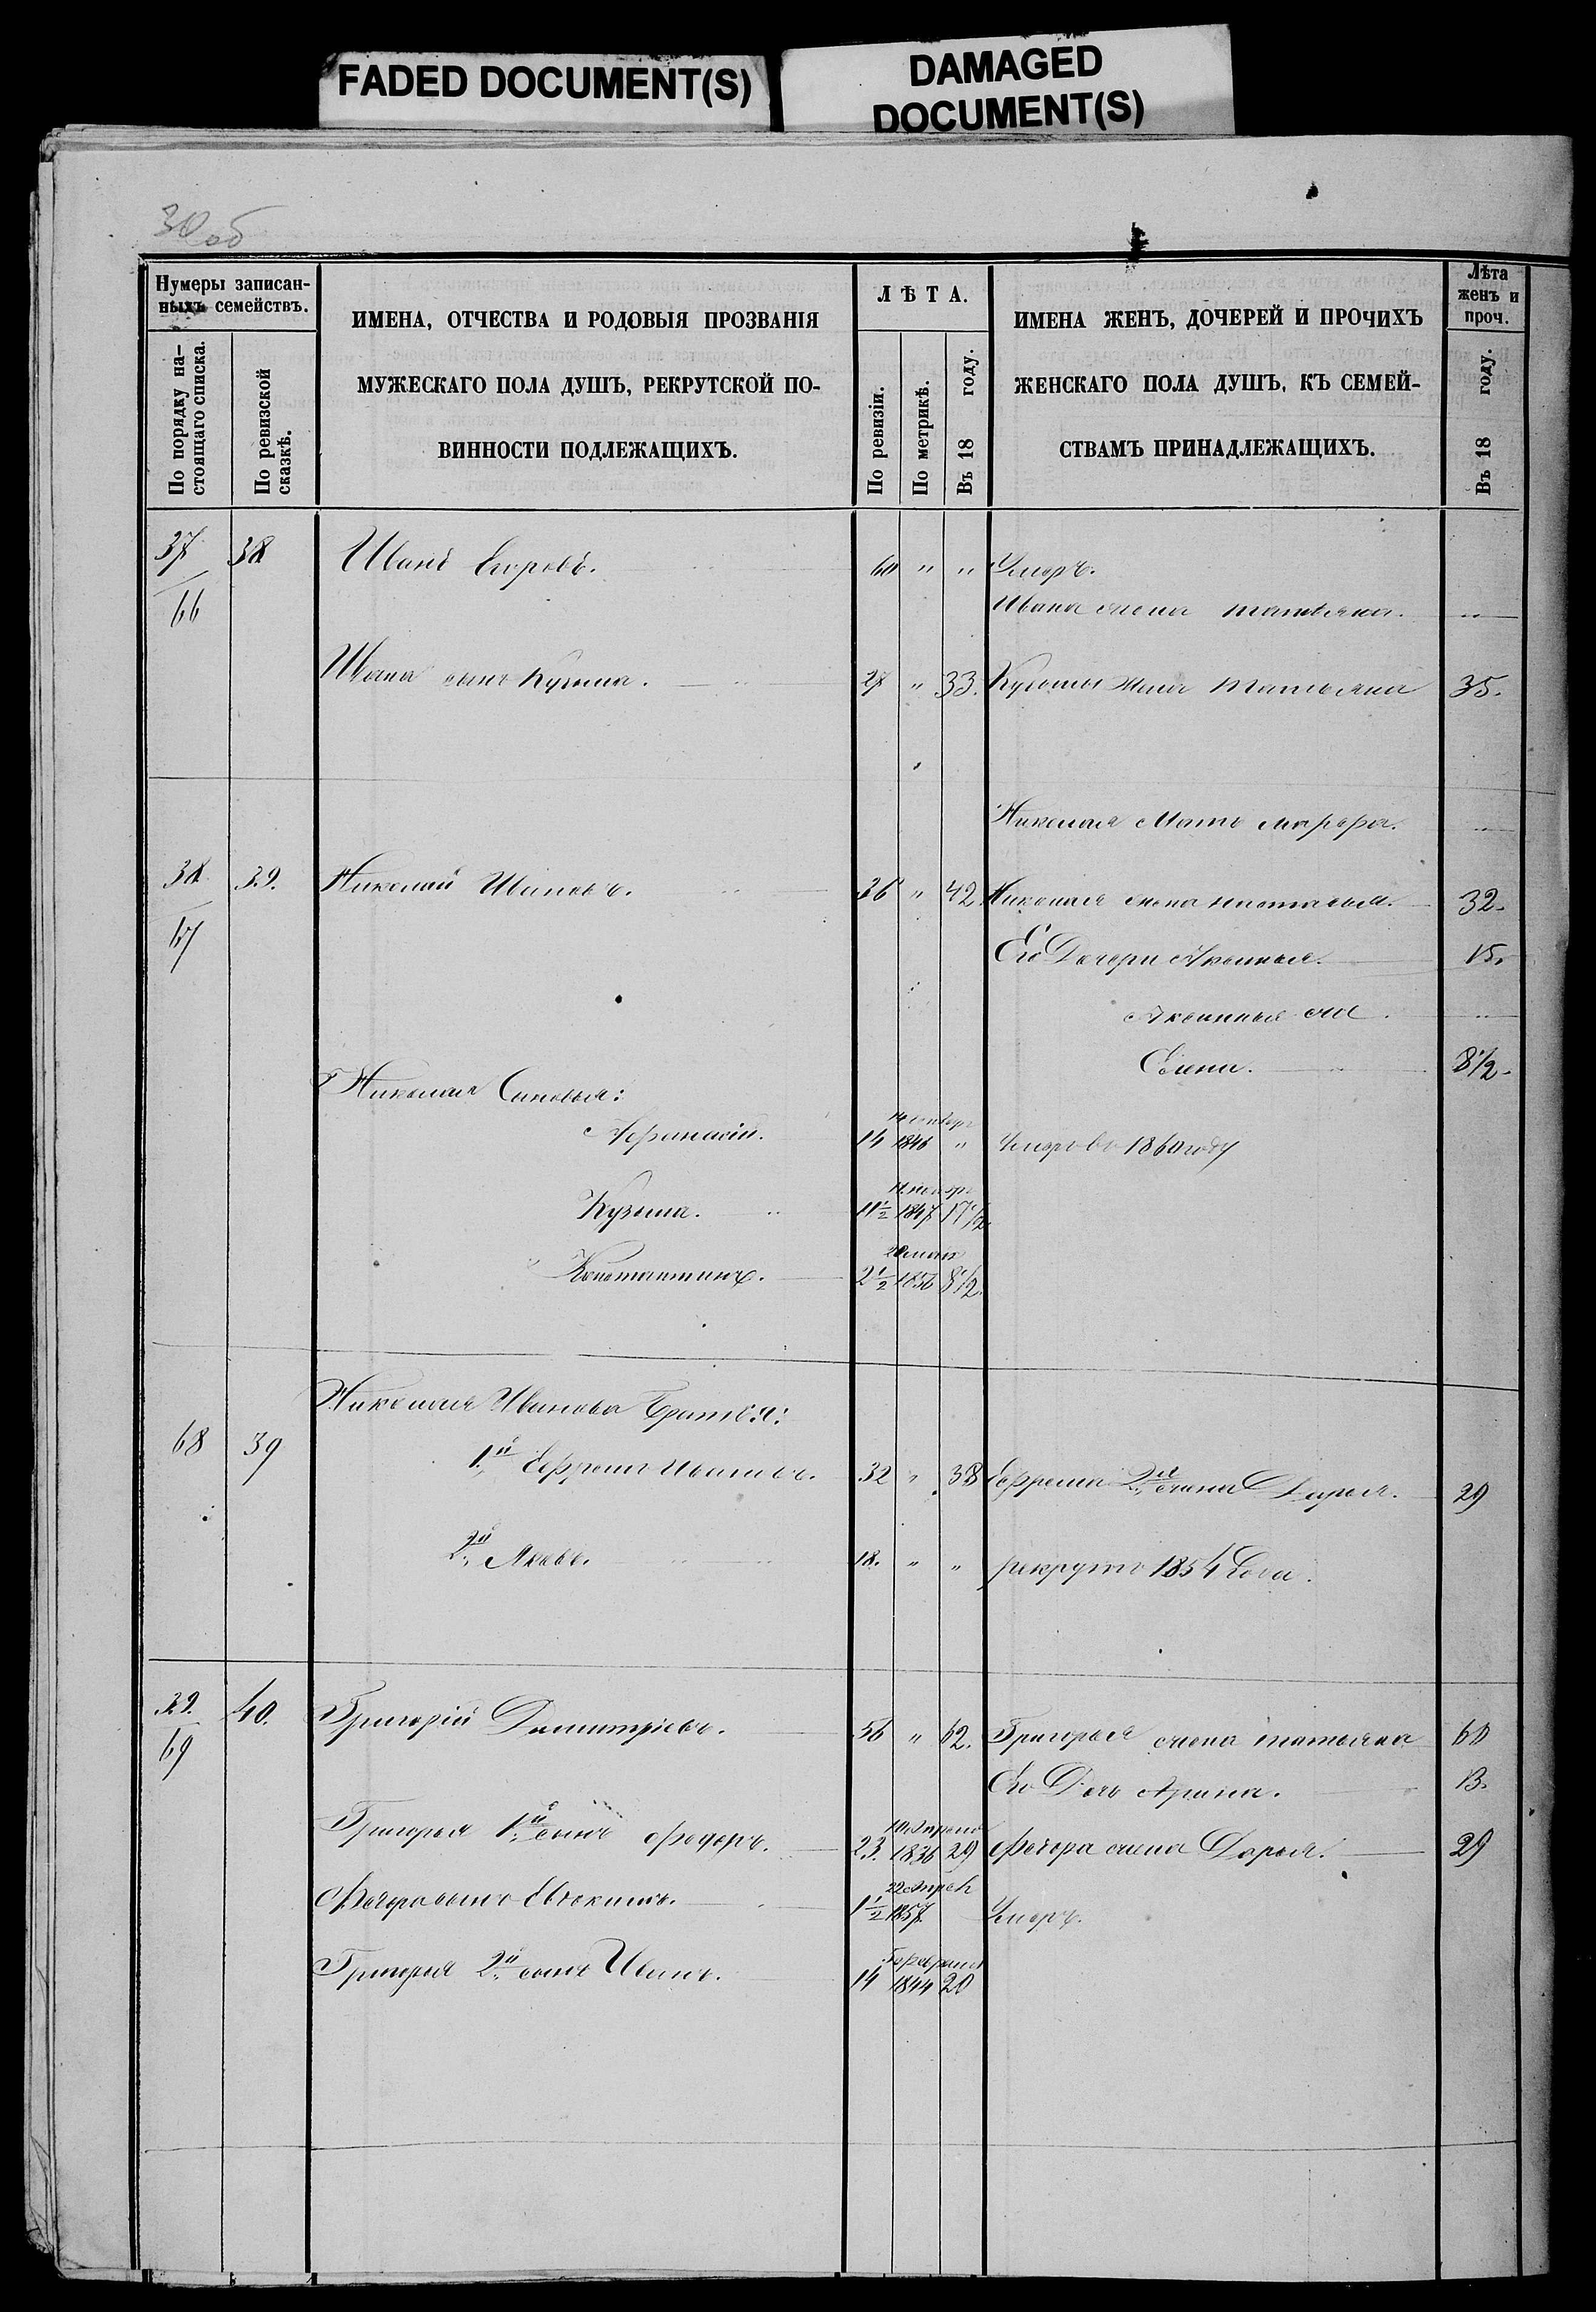 FADED DOCUMENT(S)
DAMAGED
DOCUMENT(S)
30 об
Нумеры записан-
ныхъ семействъ.
По порядку на-
стоящаго списка.
По ревизской
сказкѣ.
ИМЕНА, ОТЧЕСТВА И РОДОВЫЯ ПРОЗВАНІЯ
МУЖЕСКАГО ПОЛА ДУШЪ, РЕКРУТСКОЙ ПО-
ВИННОСТИ ПОДЛЕЖАЩИХЪ.
ЛѢТА.
По ревизіи.
По метрикѣ.
Въ 18 году.
ИМЕНА ЖЕНЪ, ДОЧЕРЕЙ И ПРОЧИХЪ
ЖЕНСКАГО ПОЛА ДУШЪ, КЪ СЕМЕЙ-
СТВАМЪ ПРИНАДЛЕЖАЩИХЪ.
Лѣта
женъ и
проч.
Въ 18 году.
37 38 Иванъ Егоровъ. 60 " " Умеръ.
66 Ивана жена Татьяна. "
Ивана сынъ Кузьма. 27 " 33. Кузьмы жена Татьяна 35.
Николая Мать Марфа.
38 39. Николай Ивановъ. 36 " 42 Николая жена Наталья. 32.
67 Его Дочери Аксинья. 15.
Аксинья "
Елена. 8 1/2.
Николая Сыновья:
Афанасій. 14 1846 " Умеръ въ 1860 году
Кузьма. 11 1/2 1847 17 1/2.
Константинъ. 2 1/2 1856 8 1/2.
Николая Иванова Братья:
68 39 1й Ефремъ Ивановъ. 32 " 38 Ефрема 2я жена Дарья. 29
2й Яковъ. 18. " " рекрутъ 1854 Года.
39. 40. Григорій Димитріевъ. 56 " 62. Григорья жена Татьяна 60
69 Его Дочь Арина. 13.
Григорья 1й сынъ Федоръ. 23. 1836 29 Федора жена Дарья. 29
22 Апрѣл
Федора сынъ Евдокимъ. 1 1/2 1857. Умеръ.
Григорья 2й сынъ Иванъ. 14 1844 20